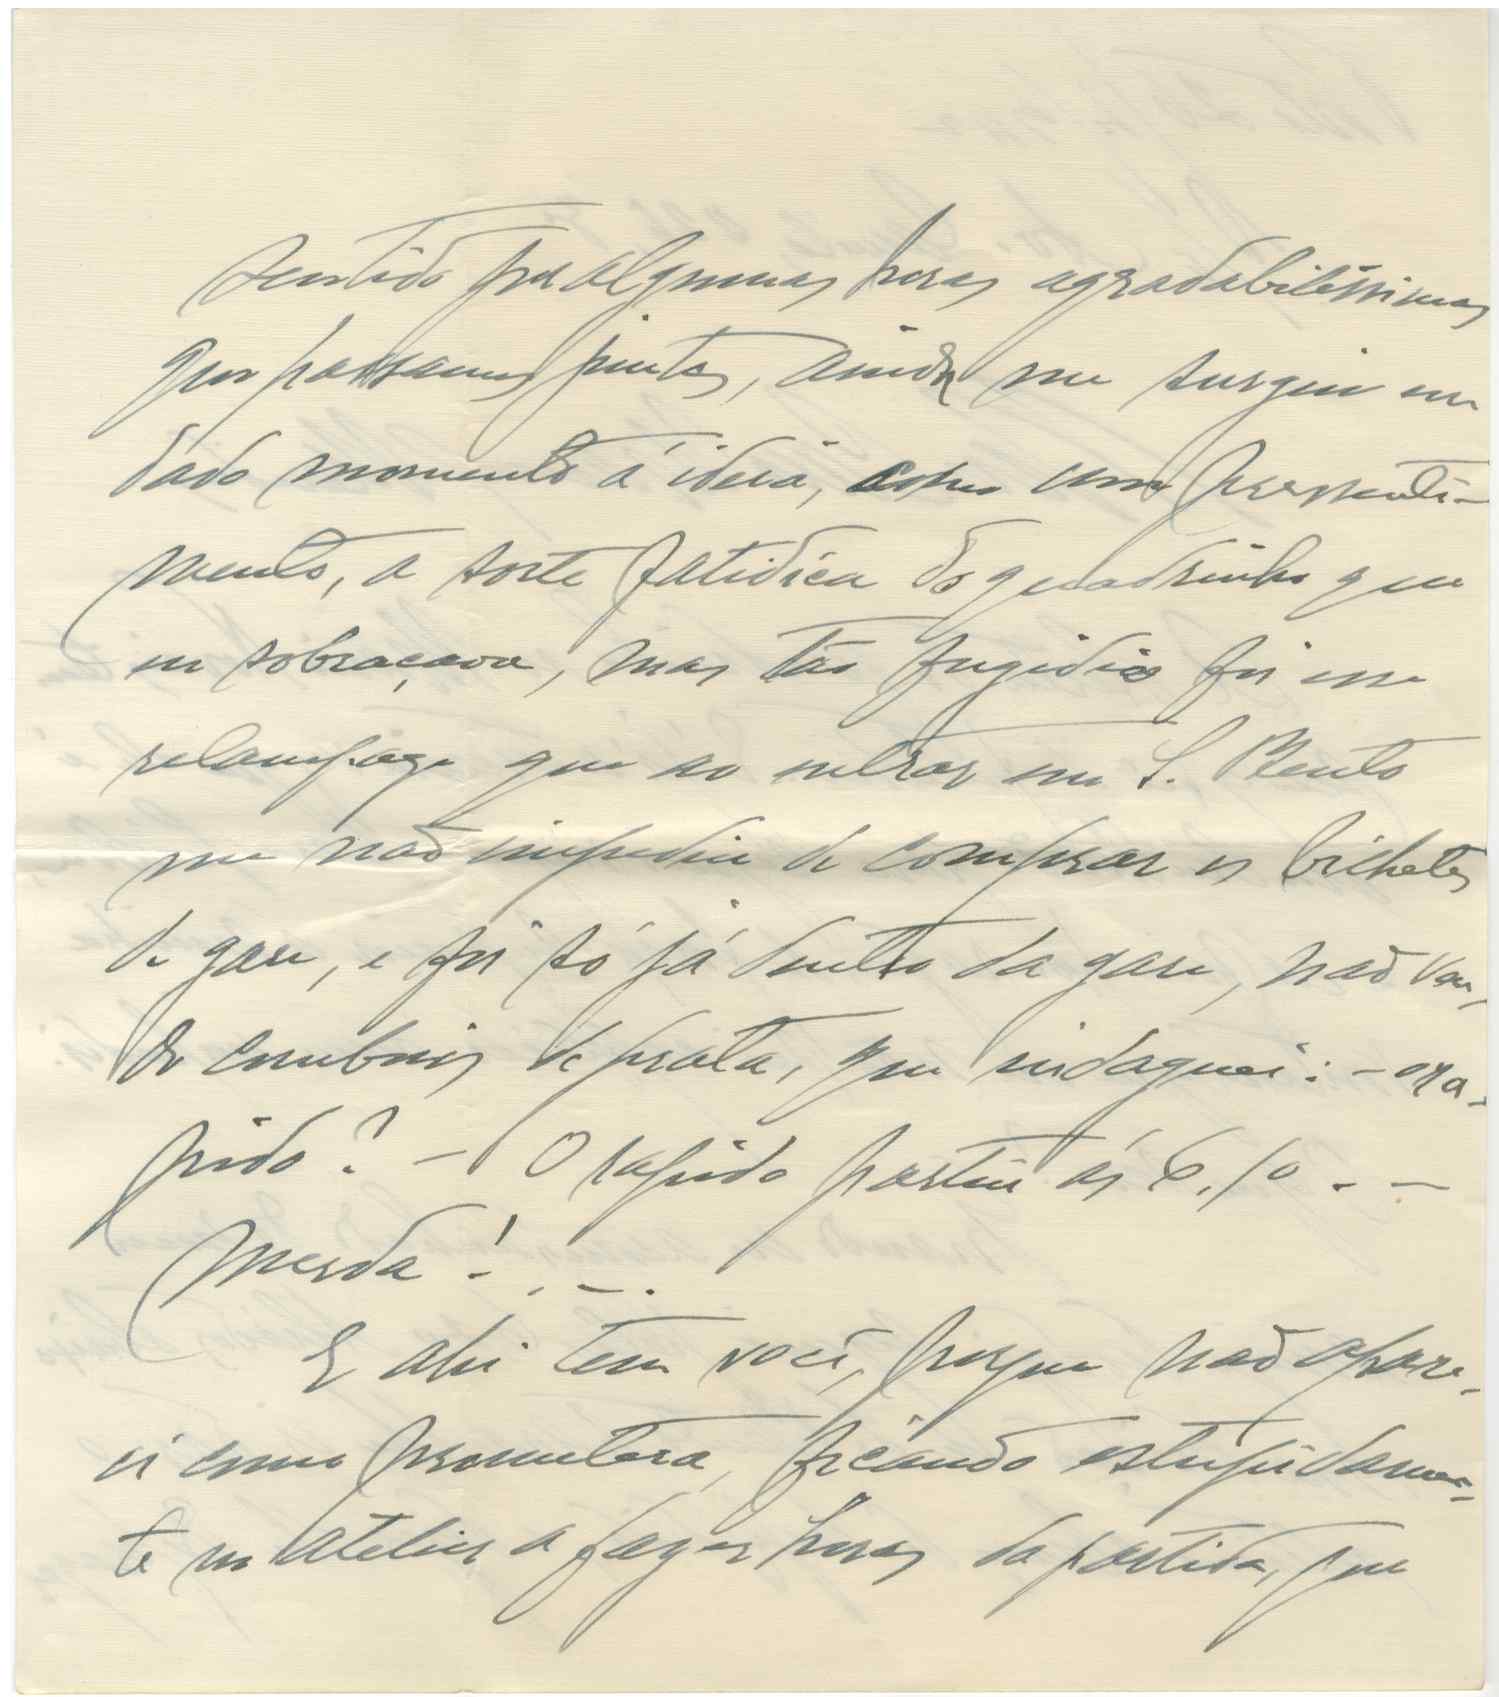 sentido por algumas horas agradabilissimas
que passamos juntos, ainda me surgiu em
dado momento á ideia, como um pressenti-
mento, a sorte fatidica do quadrinho que
eu sobraçava, mas tão fugidio foi esse
relampago que ao entrar em S. Bento
me não impediu de comprar os bilhetes
de gare, e foi só já dentro da gare, não ven-
do comboios de prata, que indaguei: - o ra-
pido? - O rapido partiu ás 6,10 . - -
Merda! . - .
E ahi tem você, porque não apare-
ci como prometera, ficando estupidamen-
te no atelier a fazer horas da partida, que